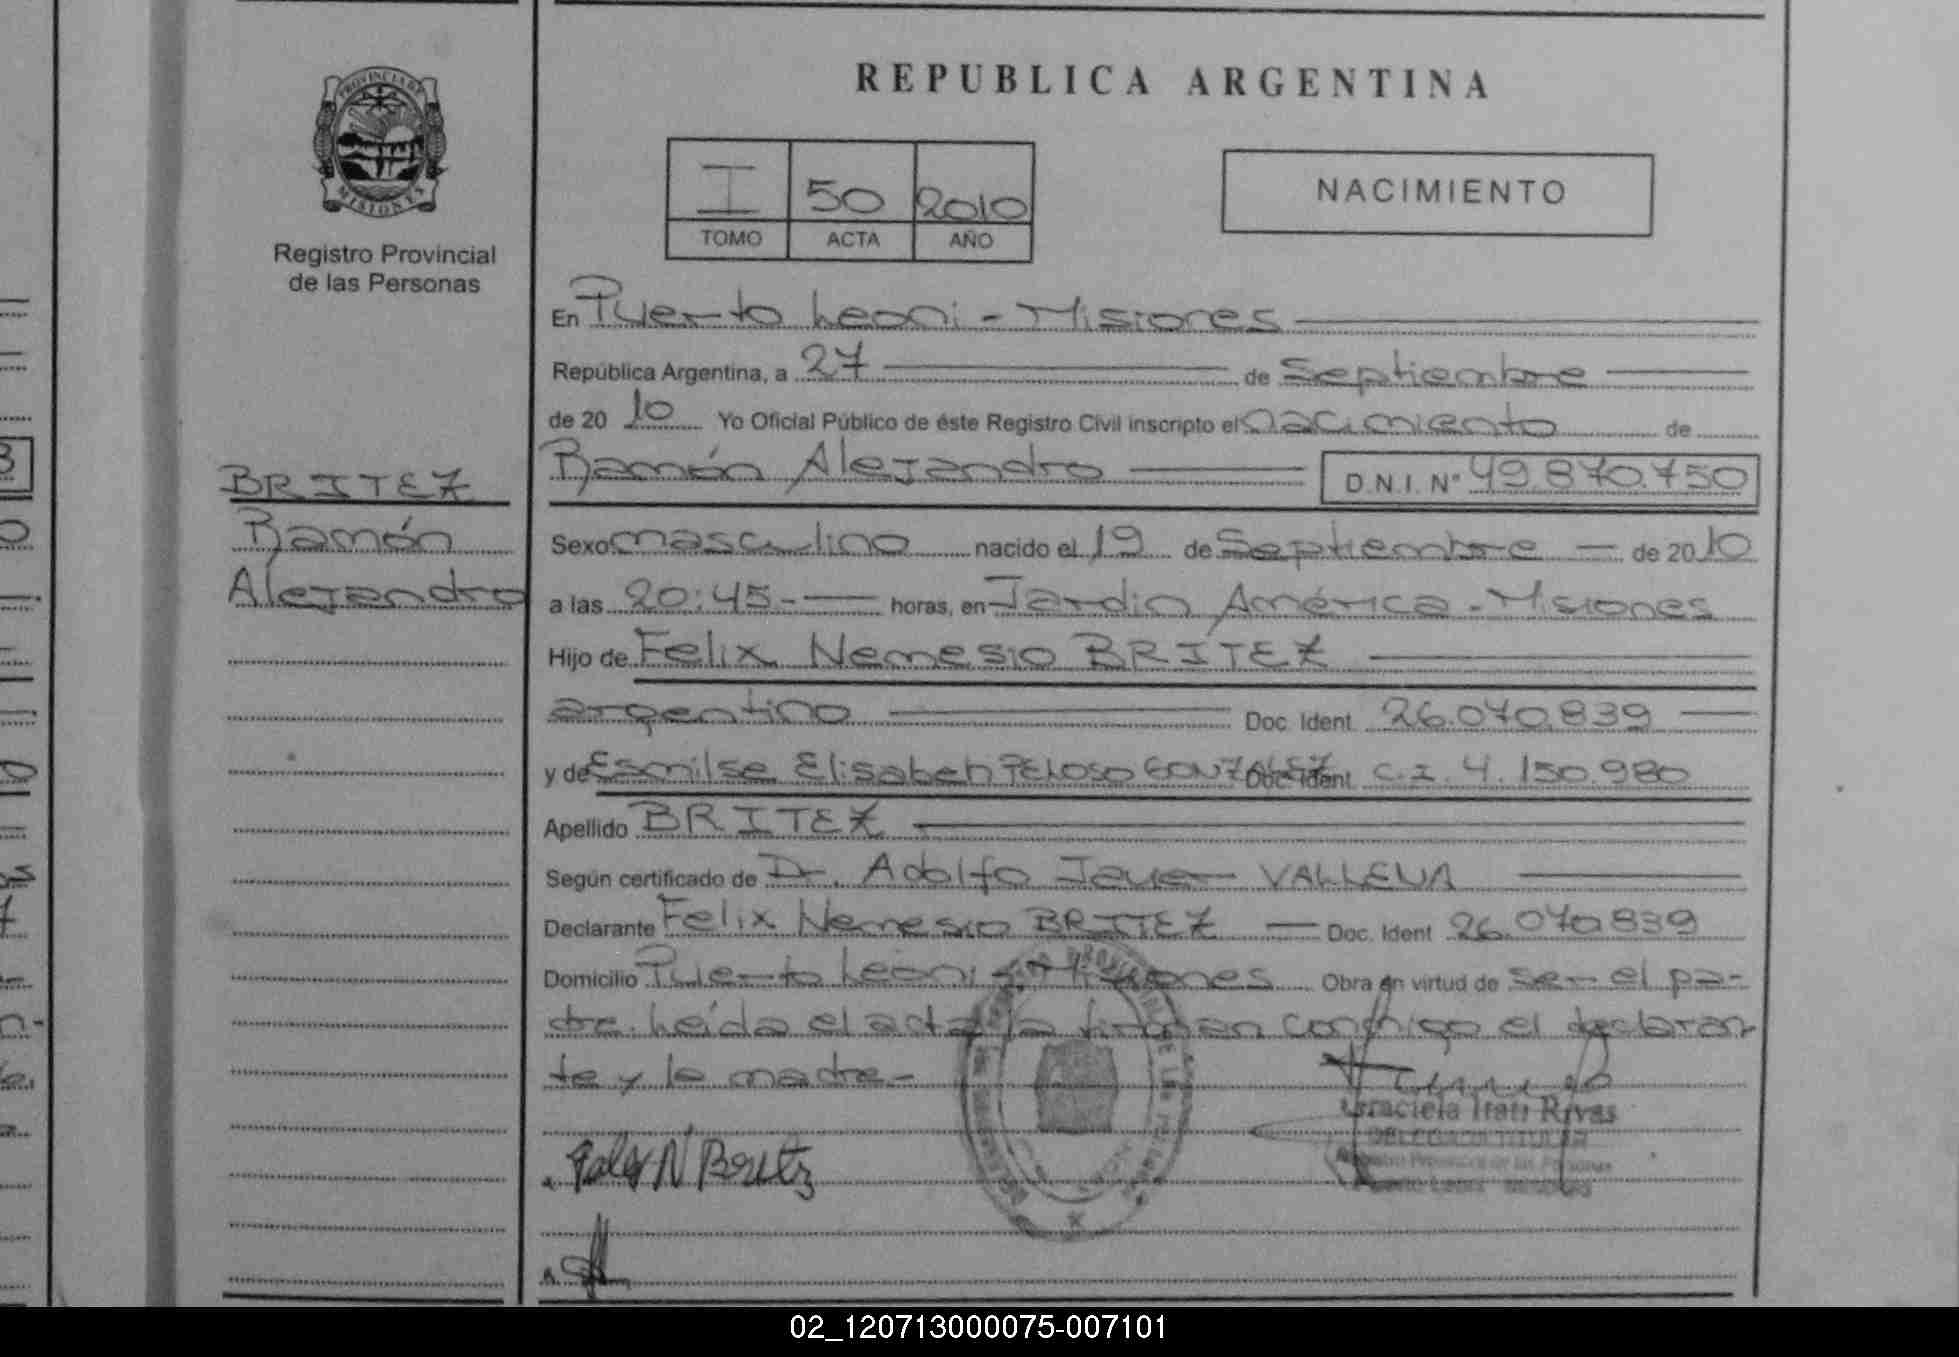 REPUBLICA ARGENTINA
PROVINCIA DE
MISIONES
Registro Provincial
de las Personas
I 50 2010
TOMO ACTA AÑO
NACIMIENTO
En Puerto Leoni - Misiones
República Argentina, a 27 de Septiembre
de 20 10 Yo Oficial Público de éste Registro Civil inscripto el nacimiento de
Ramón Alejandro D.N.I. N° 49.870.750
BRITEZ
Ramón
Alejandro
Sexo masculino nacido el 19 de Septiembre de 20 10
a las 20:45- horas, en Jardin América - Misiones
Hijo de Felix Nemesio BRITEZ
argentino Doc. Ident. 26.070.839
y de Esmilse Elisabeh PELOSO GONZALEZ Doc. Ident. C.I. 4.150.980
Apellido BRITEZ
Según certificado de Dr. Adolfo Javier
Declarante Felix Nemesio BRITEZ Doc. Ident 26.070.839
Domicilio Puerto Leoni - Misiones Obra en virtud de ser el pa-
dre. Leída el acta la firman conmigo el declaran
te y la madre-
Graciela Rivas
DELEGADO TITULAR
Registro Provincial de las Personas
Puerto Leoni Misiones
N Britz
02_120713000075-007101